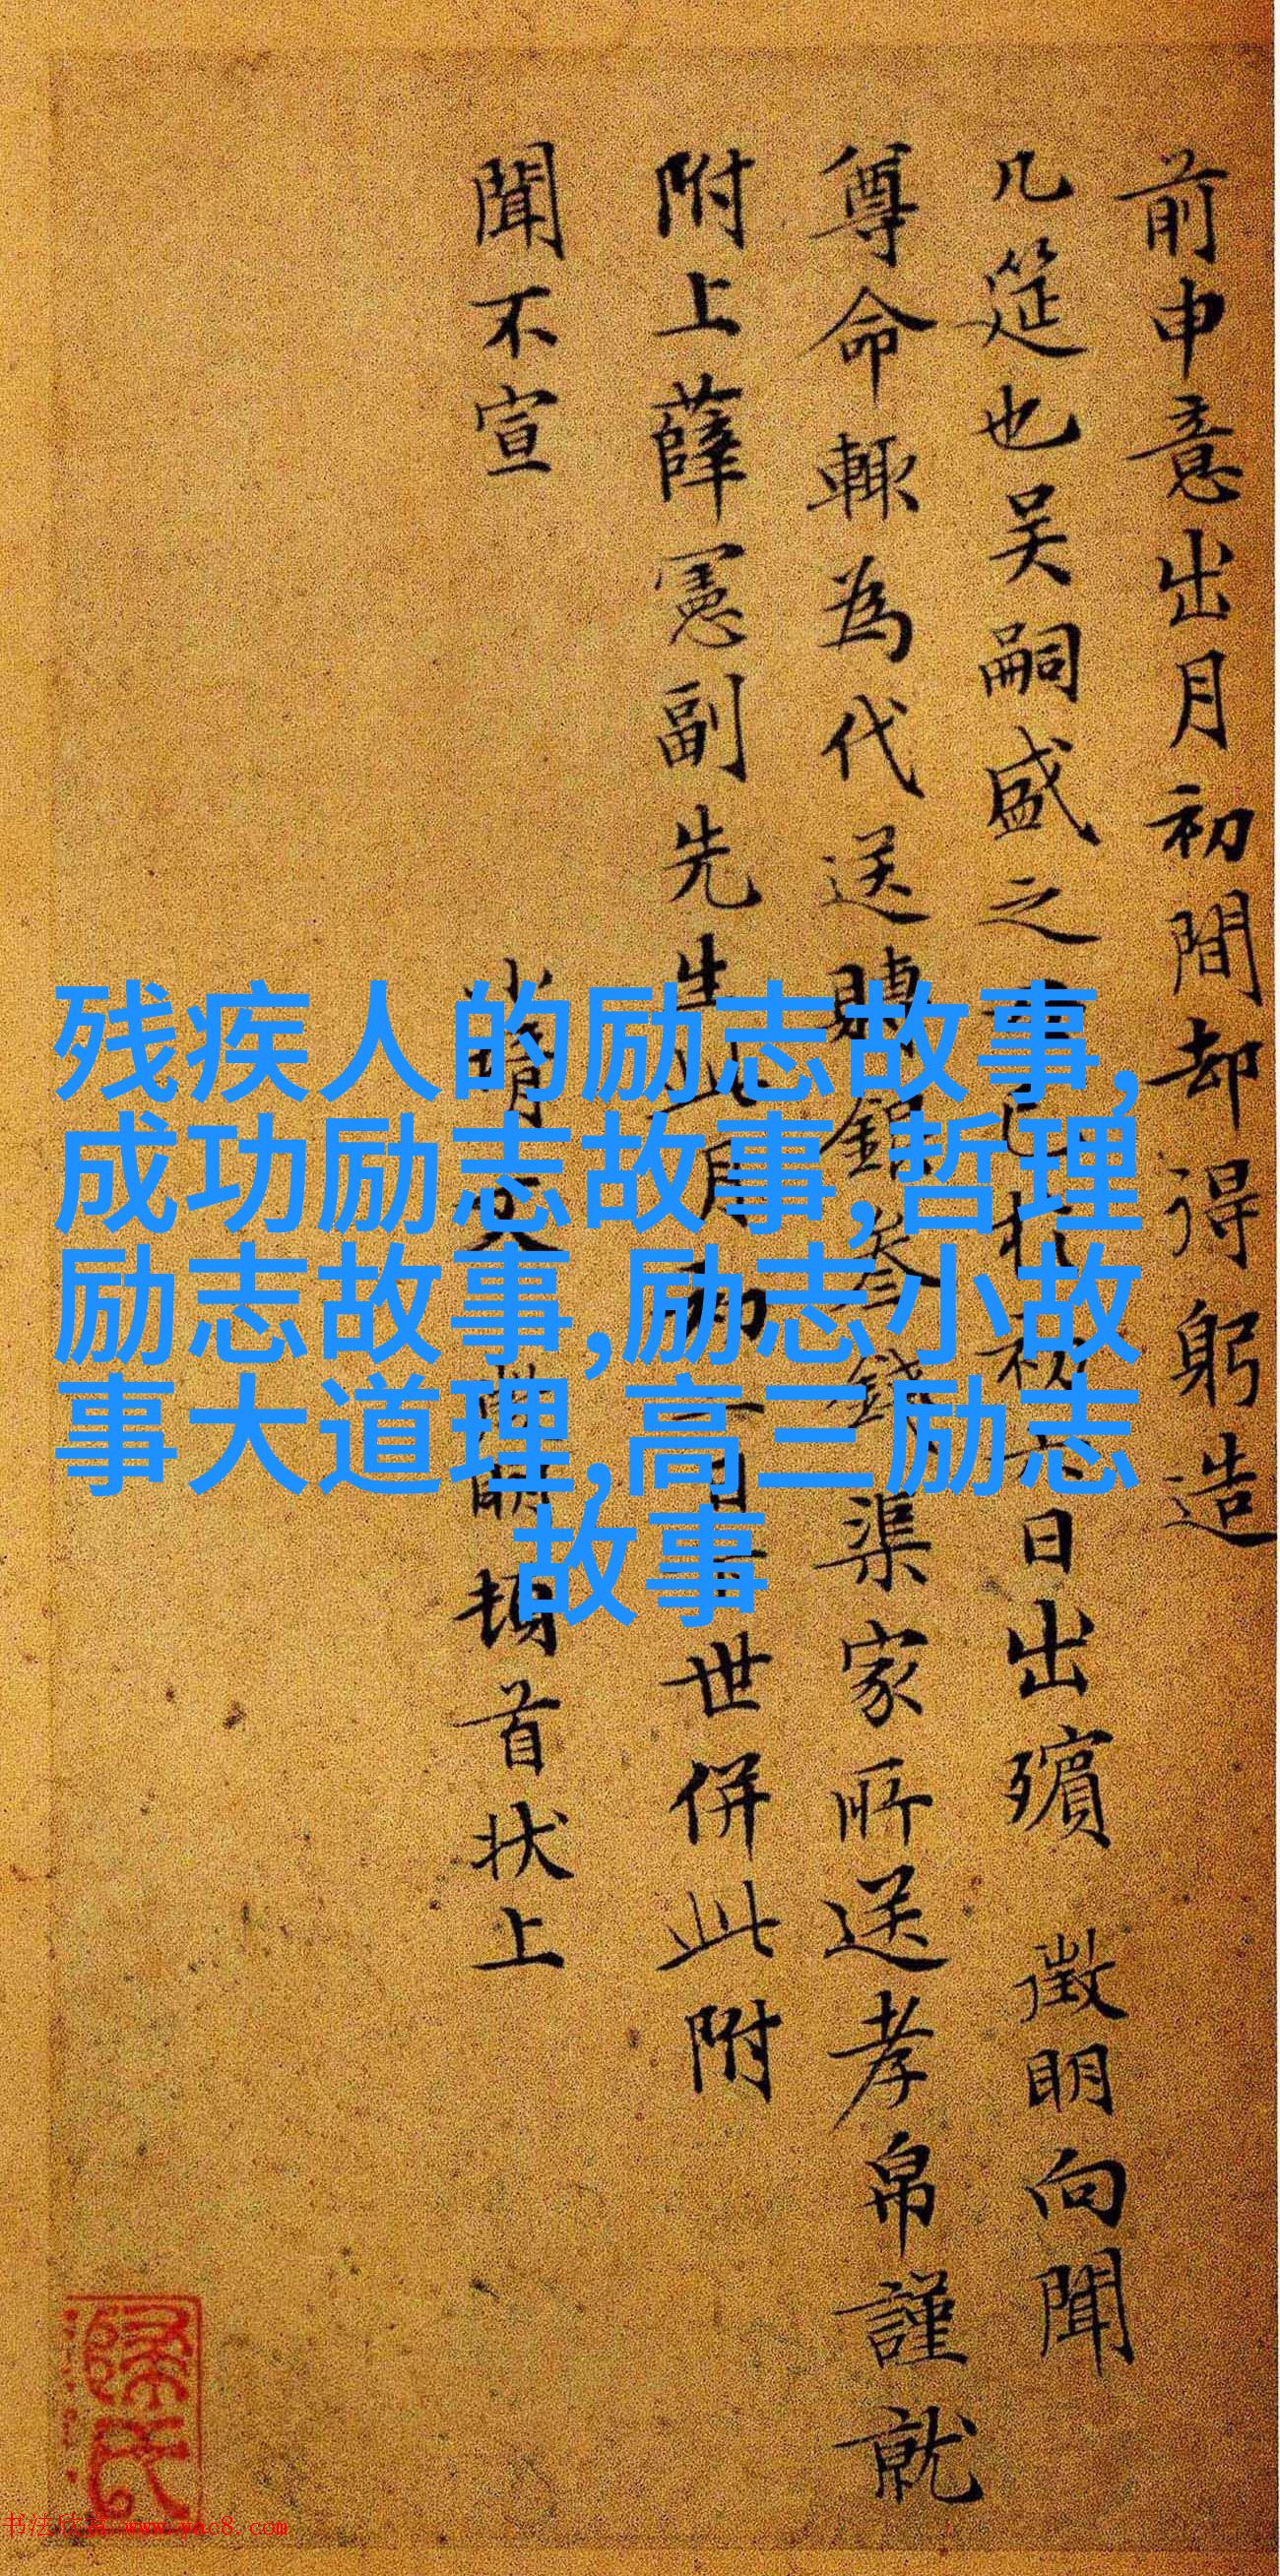 前申意出月初間却得躬造
几筵也吴嗣盛之日出殯 徵明向聞
尊命輙為代送賻銀叁錢渠家所送孝帛謹就
附上薛憲副先生此月初世併此附
聞不宣
頓首状上
残疾人的励志故事,
成功励志故事,哲理
励志故事,励志小故
事大道理,高三励志
故事
书法欣赏 www.yac8.com